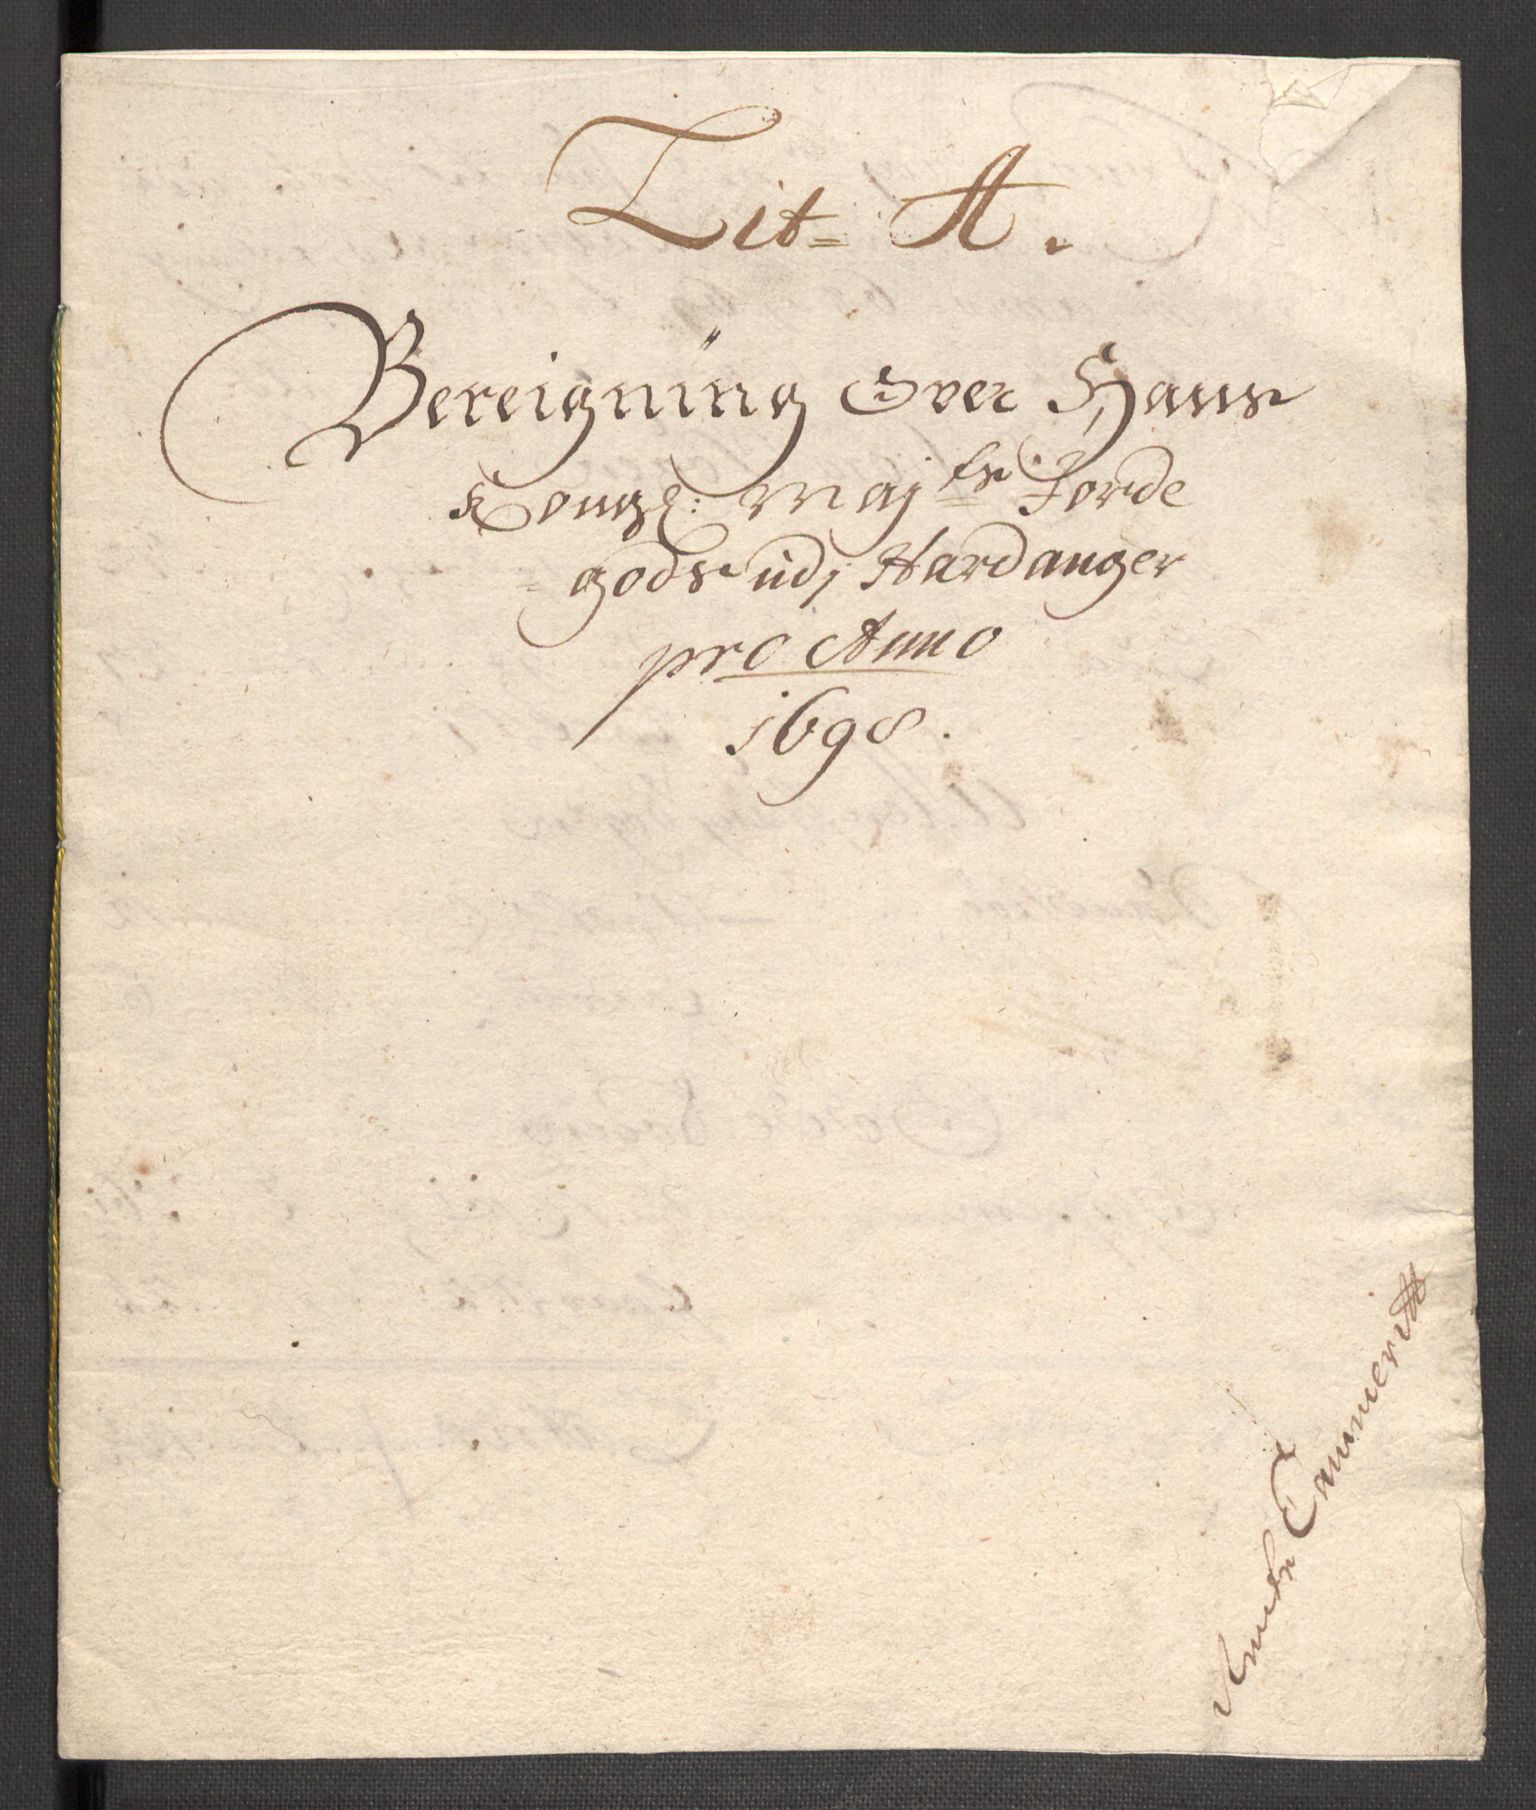 Lit= A.
Bereigning Over Hans
Kongl: Maj:ts Jorde
gods udj Hardanger
pro Anno
1698.